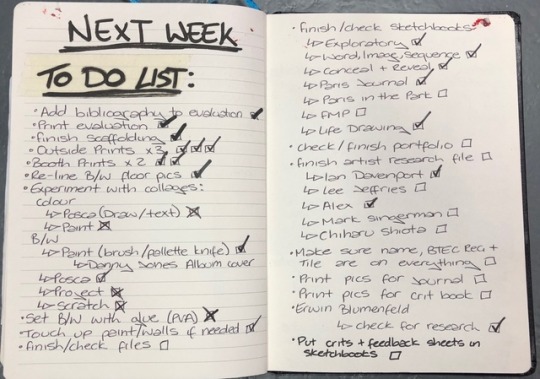 NEXT WEEK
TO DO LIST:
• Add bibliography to evaluation ☑
• Print evaluation ☑
• Finish scaffolding ☑
• Outside Prints x3 ☑☑☑
• Booth Prints x2 ☑☑
• Re-line B/W floor pics ☑
• Experiment with collages:
colour
↳ Posca (Draw/text) ☒
↳ Paint ☒
B/W
↳ Paint (brush/pallette knife) ☑
↳ Danny Jones Album cover
↳ Posca ☑
↳ Project ☒
↳ scratch ☒
• Set B/W with glue (PVA) ☒
• Touch up paint/walls if needed ☑
• finish/check files ☐
• finish/check sketchbooks:
↳ Exploratory ☑
↳ Word, Image, Sequence ☑
↳ Conceal + Reveal ☑
↳ Paris Journal ☑
↳ Paris in the Park ☐
↳ FMP ☐
↳ Life Drawing ☑
• check/finish portfolio ☐
• finish artist research file ☐
↳ Ian Davenport ☑
↳ Lee Jeffries ☐
↳ Alex ☑
↳ Mark Singerman ☐
↳ Chiharu Shiota ☐
• Make sure name, BTEC Reg +
Title are on everything ☐
• Print pics for Journal ☐
• Print pics for crit book ☐
• Erwin Blumenfeld
↳ check for research ☑
• Put crits + feedback sheets in
sketchbooks ☐